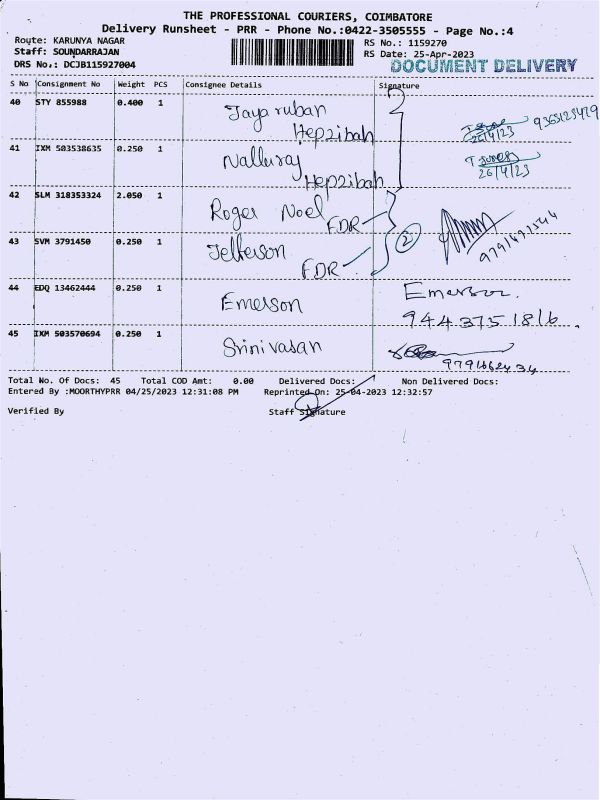 THE PROFESSIONAL COURIERS, COIMBATORE
Delivery Runsheet - PRR - Phone No.:0422-3505555 - Page No.:4
Route: KARUNYA NAGAR
RS No.: 1159270
Staff: SOUNDARRAJAN
RS Date: 25-Apr-2023
DRS No.: DCJB115927004
DOCUMENT DELIVERY
S No Consignment No Weight PCS Consignee Details Signature
40 STY 855988 0.400 1 Jaya ruban
Hepzibah
26/4/23
41 IXM 503538635 0.250 1 Nalluraj
Hepzibah
26/4/23
42 SLM 318353324 2.050 1 Roger Noel
FDR
2
43 SVM 3791450 0.250 1 Jefferson
FDR
44 EDQ 13462444 0.250 1 Emerson Emerson.
9443751816.
45 IXM 503570694 0.250 1 Srinivasan
9791662434
Total No. Of Docs: 45 Total COD Amt: 0.00 Delivered Docs: Non Delivered Docs:
Entered By :MOORTHYPRR 04/25/2023 12:31:08 PM Reprinted On: 25-04-2023 12:32:57
Verified By Staff Signature